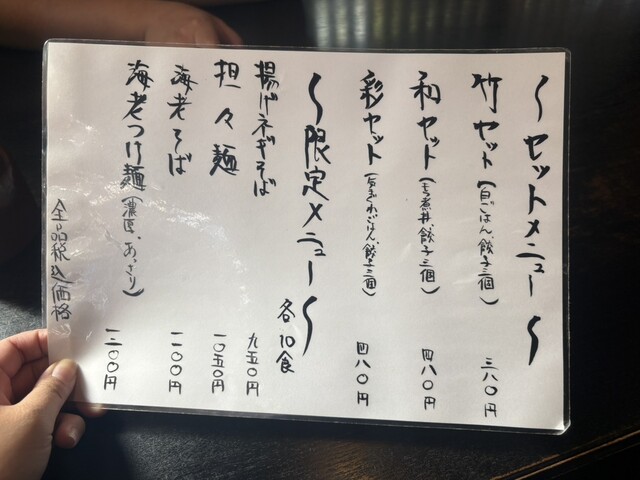 〜セットメニュー〜
竹セット(白ごはん、餃子三個) 三八〇円
和セット(もつ煮丼、餃子三個) 四八〇円
彩セット(ねぎごはん、餃子三個) 四八〇円
〜限定メニュー〜
各10食
揚げネギそば 九五〇円
担々麺 一〇五〇円
海老そば 一一〇〇円
海老つけ麺(濃厚、あっさり) 一二〇〇円
全品税込価格